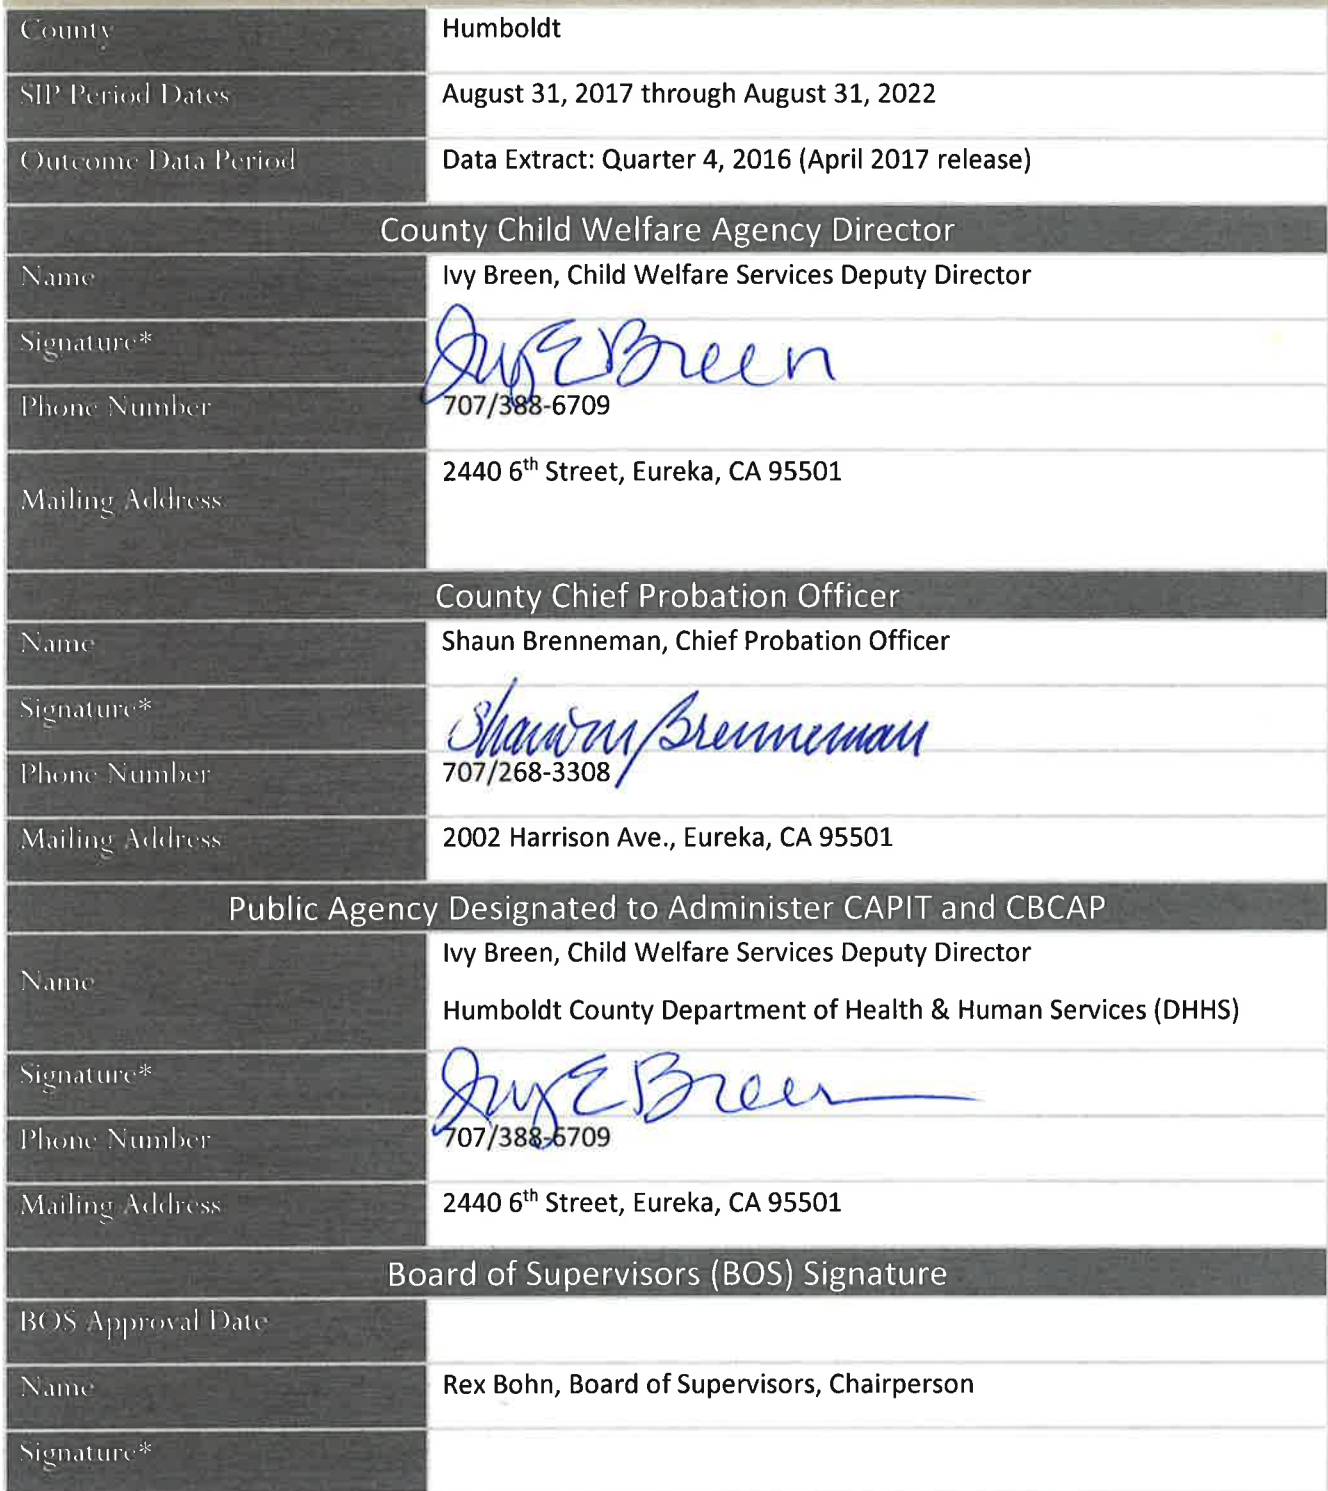 County Humboldt
SIP Period Dates August 31, 2017 through August 31, 2022
Outcome Data Period Data Extract: Quarter 4, 2016 (April 2017 release)
County Child Welfare Agency Director
Name Ivy Breen, Child Welfare Services Deputy Director
Signature* Ivy E Breen
Phone Number 707/388-6709
Mailing Address 2440 6th Street, Eureka, CA 95501
County Chief Probation Officer
Name Shaun Brenneman, Chief Probation Officer
Signature* Shaun M Brenneman
Phone Number 707/268-3308
Mailing Address 2002 Harrison Ave., Eureka, CA 95501
Public Agency Designated to Administer CAPIT and CBCAP
Name Ivy Breen, Child Welfare Services Deputy Director
Humboldt County Department of Health & Human Services (DHHS)
Signature* Ivy E Breen
Phone Number 707/388-6709
Mailing Address 2440 6th Street, Eureka, CA 95501
Board of Supervisors (BOS) Signature
BOS Approval Date
Name Rex Bohn, Board of Supervisors, Chairperson
Signature*